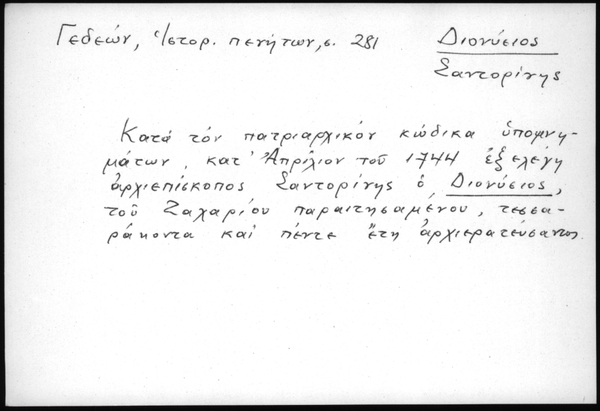 Γεδεών, Ἱστορ. πενήτων, σ. 281
Διονύσιος
Σαντορίνης
Κατά τόν πατριαρχικόν κώδικα ὑπομνη-
μάτων, κατ' Ἀπρίλιον τοῦ 1744 ἐξελέγη
ἀρχιεπίσκοπος Σαντορίνης ὁ Διονύσιος,
τοῦ Ζαχαρίου παραιτησαμένου, τεσσα-
ράκοντα καί πέντε ἔτη ἀρχιερατεύσαντος.